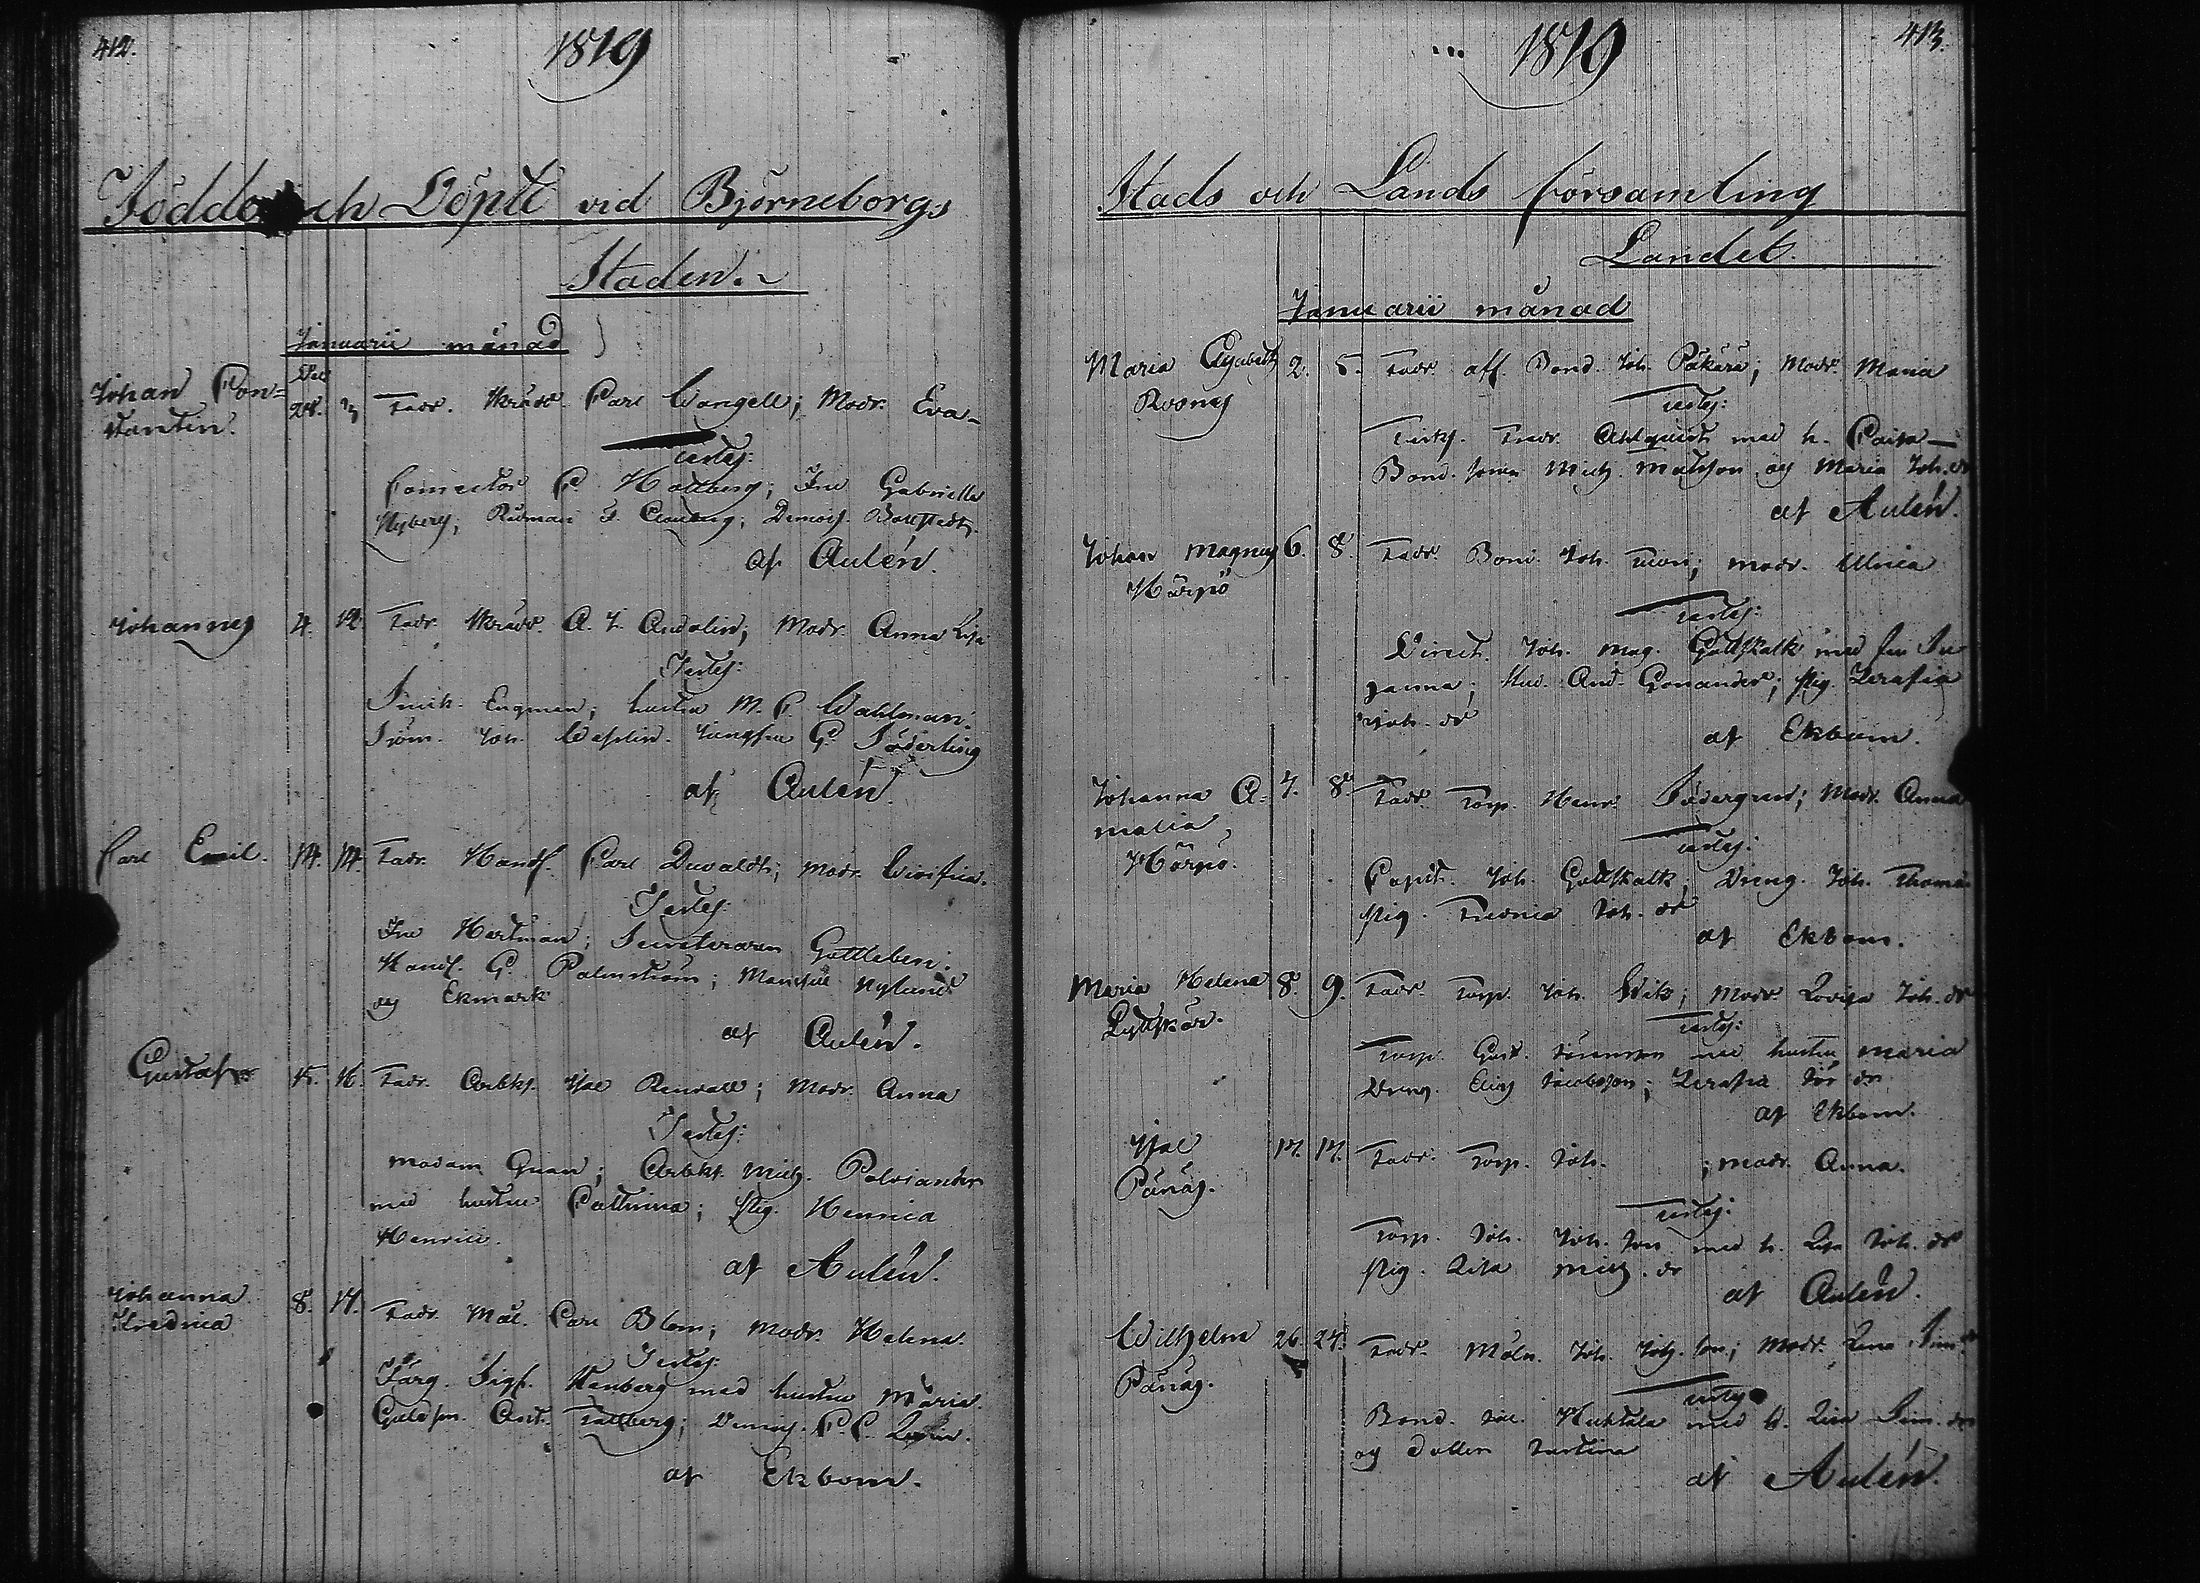 412.
1819
Födde och Döpte vid Björneborgs
Staden.
Januarii månad
Johan Con=
stantin.
Dec
28. 3 Fadr. Skrädd. Carl Wangell; Modr. Eva
Testes:
Conrector C. Hallberg; Fru Gabriella
Nyberg; Rådman
af Aulén.
Johannes 4. 12. Fadr. Skrädd. A. J. Andelin; Modr. Anna Lisa
Testes:
Snick. Engman; hustru M. C. Wahlman.
Joh. Jungfru C. Söderling
af Aulén.
Carl Emil. 14. 14. Fadr. Handl. Carl Dewaldt; Modr.
Testes:
Fru Hartman; Secreteraren Gottleben;
Handl. G. Palmström; Mamsell Nylund
och Ekmark
af Aulén.
Gustaf 15. 16. Fadr. Arbks. Isac Renvall; Modr. Anna
Testes:
Madam Gran; Arbks. Mich. Polviander
med hustru Cathrina; Pig. Henrica
Henrici.
af Aulén.
Johanna
Fredrica
8. 17. Fadr. Mål. Carl Blom; Modr. Helena.
Testes:
Färg. Sigf. Stenberg med hustru Maria.
Guldsm. Ant. Fallberg; Demois. C. C.
af Ekbom.
1819
413.
Stads och Lands församling
Landet.
Januarii månad
Maria Elisabeth
Rosnäs
2. 5. Fadr. afl. Bond. Joh. Päkärä; Modr. Maria
Testes:
Fredr. Ahlqvist med h. Caisa
Bond. sonen Mich. Matsson och Maria Joh. dr
af Aulén.
Johan Magnus
Hårpö
6. 8. Fadr. Bond. Joh. Modr. Ulrica
Testes:
Direct. Joh. Mag. Gottskalk med fru Su=
sanna; Stud. And. Gonander; Pig. Serafia
Joh. dr
af Ekbom.
Johanna A=
malia,
Hårpö.
7. 8. Fadr. Torp. Henr. Södergren; Modr. Anna
Testes:
Capit. Joh. Gottskalk; Dreng. Joh. Thomas
Pig. Fredrica Joh. dr
af Ekbom.
Maria Helena
Lyttskär.
8. 9. Fadr. Torp. Joh. Wik; Modr. Lovisa Joh. dr
Testes:
Torp. Gust. med hustru Maria
Dreng. Elis Jacobsson; Serafia
af Ekbom.
Isac
Pänäs.
17. 17. Fadr. Torp. Joh. ; Modr. Anna.
Testes:
Torp. Joh. Joh. son med h. Lisa Joh. dr
Pig. Lisa Mich. dr
af Aulén.
Wilhelm
Pänäs.
26. 27. Fadr. Möln. Joh. Joh. son; Modr. Lena Sim. dr
Testes:
Bond. Huhtala med h. Lisa Sim. dr
och dottern Justina
af Aulén.